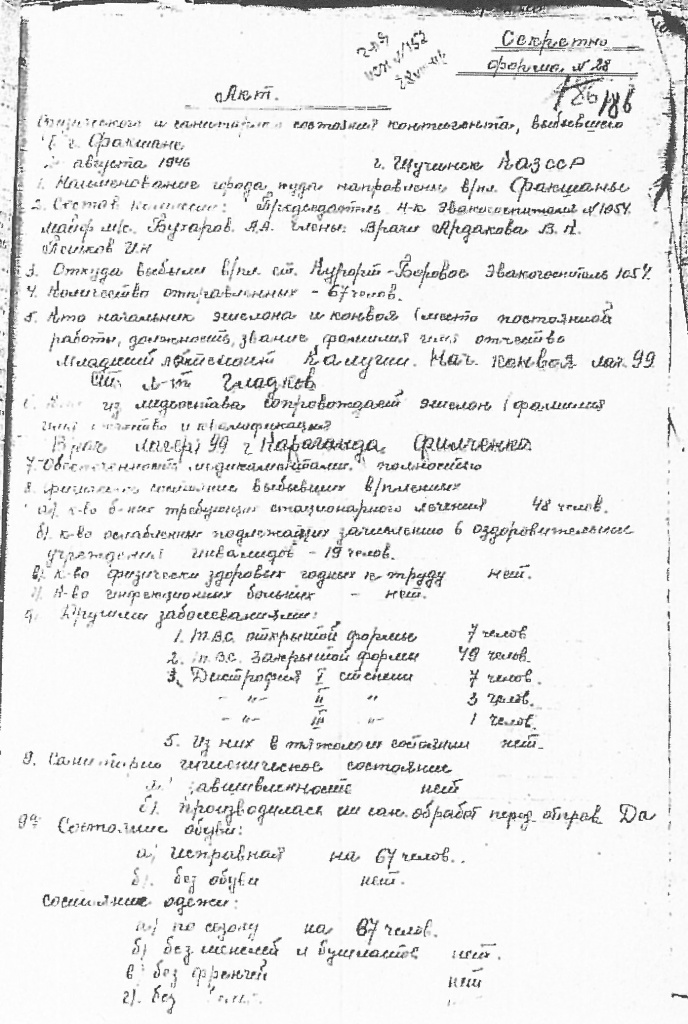 Секретно
форма N 28
86/86
Акт.
Физического и санитарного состояния контингента, выбывшего
в г. Факшане
августа 1946 г. Щучинск Каз ССР
1. Наименование города, куда направлены в/пл. Факшаны
2. Состав комиссии: Председатель Н-к Эвакогоспиталя N 1054
майор м/с. Бухаров А.А. Члены: Врачи Ардакова В.К.
Лейков И.Н
3. Откуда выбыли в/пл. ст. Курорт-Боровое Эвакогоспиталь 1054.
4. Количество отправленных - 67 челов.
5. Кто начальник эшелона и конвоя (место постоянной
работы, должность, звание, фамилия имя отчество
Младший лейтенант Калугин. Нач. конвоя лаг. 99
Ст. л-т Гладков
6. Кто из медсостава сопровождает эшелон (фамилия
имя отчество и квалификация
Врач лагеря 99 г Караганда Филченко
7. Обеспеченность медикаментами. полностью
8. физическое состояние выбывших в/пленных
а) к-во б-ных требующих стационарного лечения 48 челов.
б) к-во ослабленных подлежащих зачислению в оздоровительные
учреждения инвалидов - 19 челов.
в) К-во физически здоровых годных к труду нет.
г) К-во инфекционных больных - нет.
д) Другими заболеваниями:
1. Т.В.С. открытой формы 7 челов
2. Т.В.С. Закрытой формы 49 челов.
3. Дистрофия I степени 7 челов.
- "- II " 3 челов.
- "- III "- 1 челов.
5. Из них в тяжолом состоянии нет.
9. Санитарно гигиеническое состояние
а) завшивленность нет
б). Производилась ли сан. обработ перед. отправ. Да
9а Состояние обуви:
а) исправная на 67 челов..
б). без обуви нет.
состояние одежи:
а) по сезону на 67 челов.
б) без шинелей и бушлатов нет.
в) без френчей нет
г). без